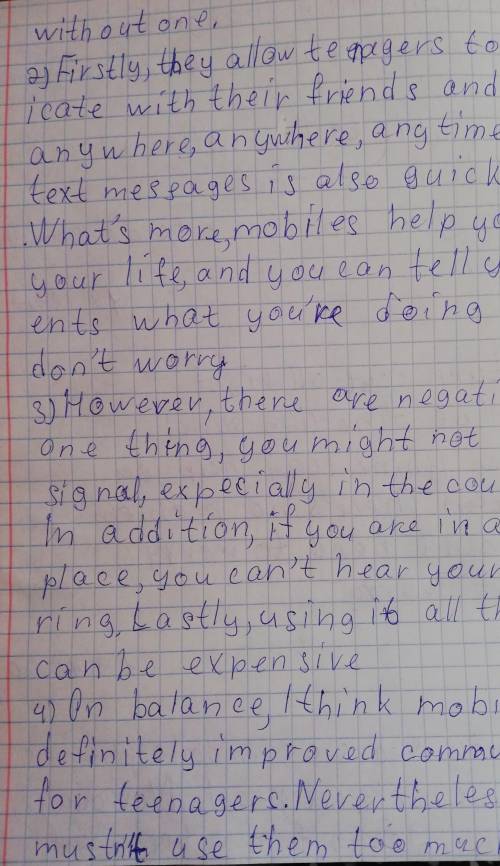 without one.
2) Firstly, they allow teenagers to
icate with their friends and
anywhere, anywhere, any time
text messages is also quick
. What's more, mobiles help yo
your life, and you can tell y
ents what you're doing
don't worry
3) However, there are negati
one thing, you might not
signal, expecially in the cou
In addition, if you are in a
place, you can't hear your
ring. Lastly, using it all th
can be expensive
4) On balance, I think mobi
definitely improved commu
for teenagers. Nevertheles
mustn't use them too muc